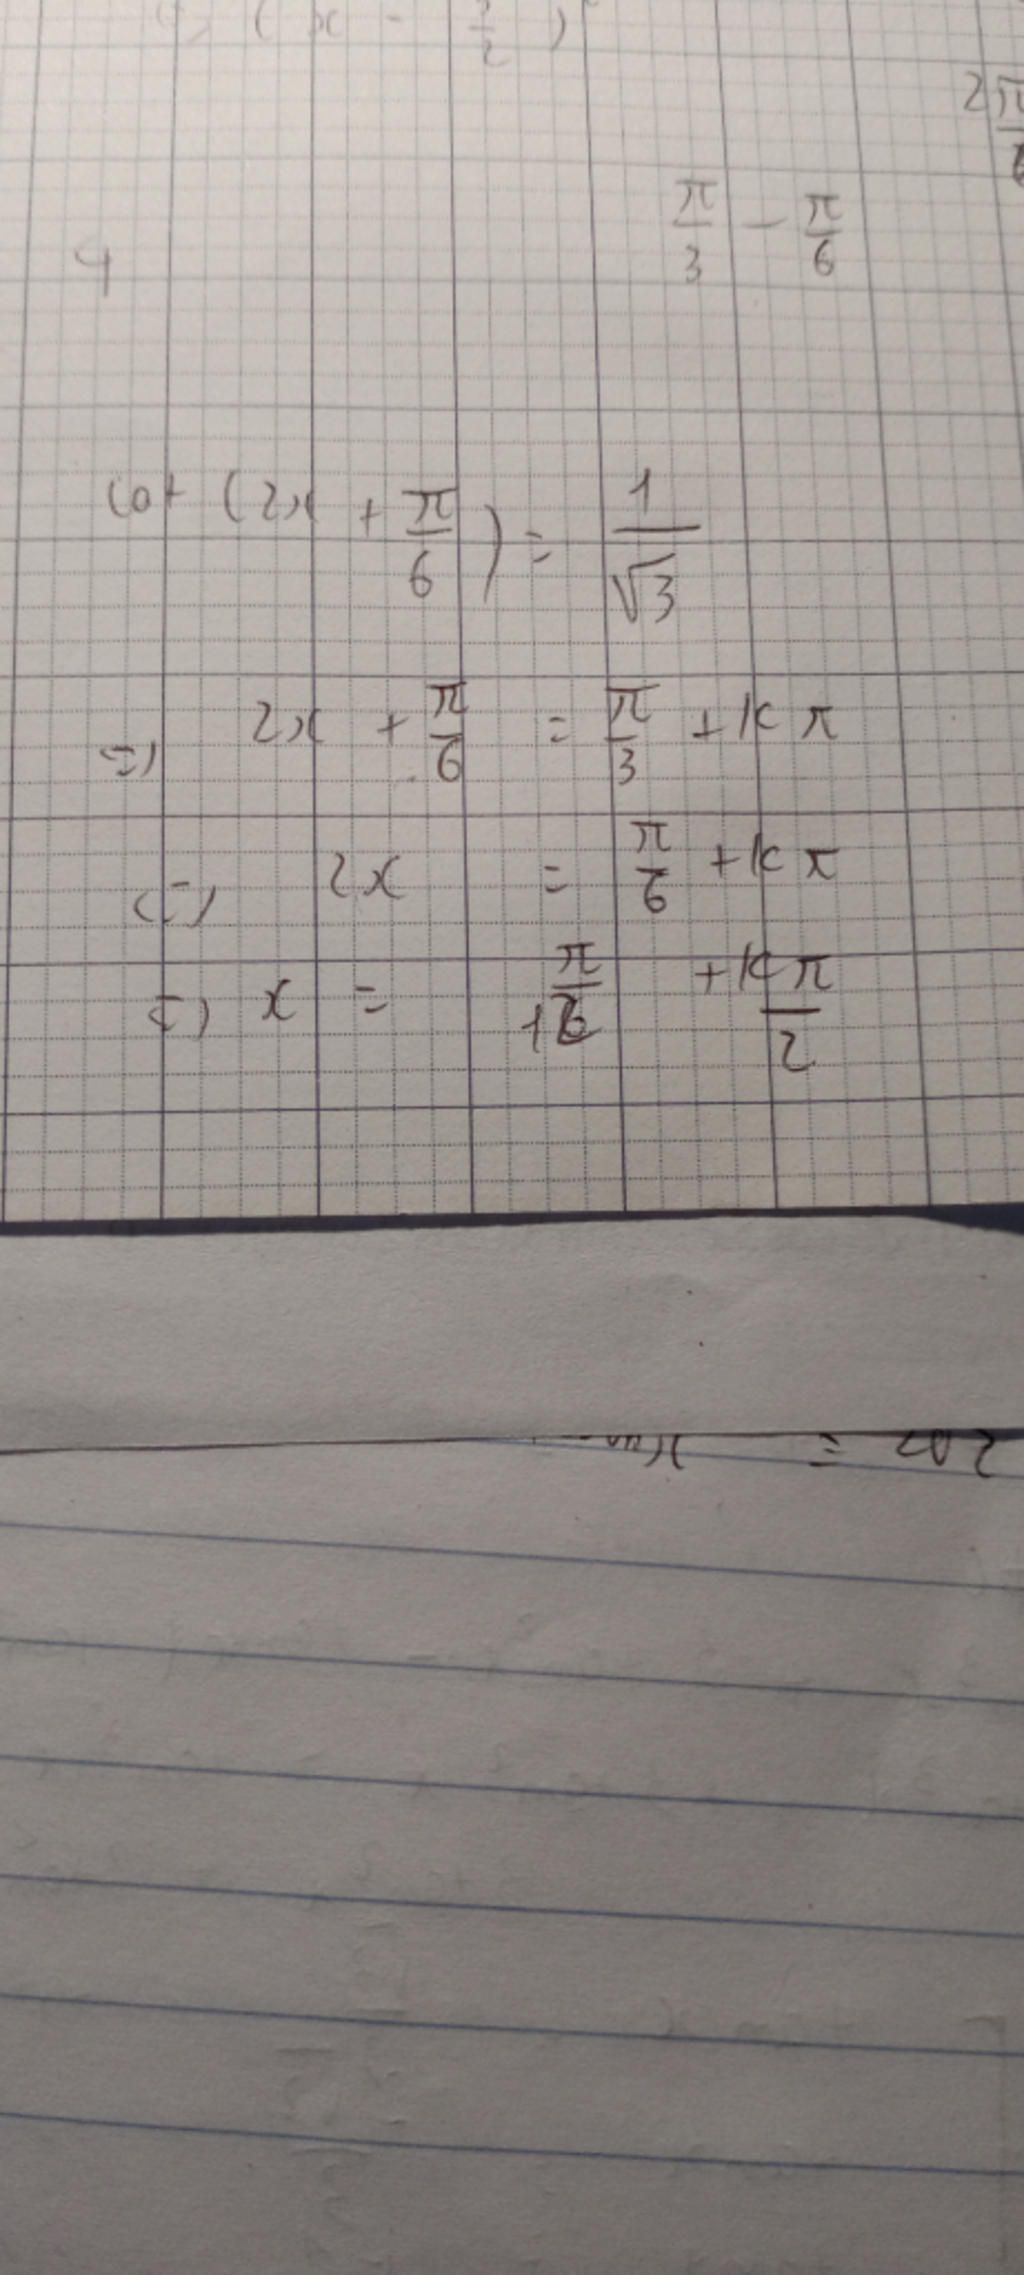 (x - 
2π
π/3 - π/6
4
cot (2x + π/6) = 1/√3
=) 2x + π/6 = π/3 + kπ
(=) 2x = π/6 + kπ
=) x = π/12 + kπ/2